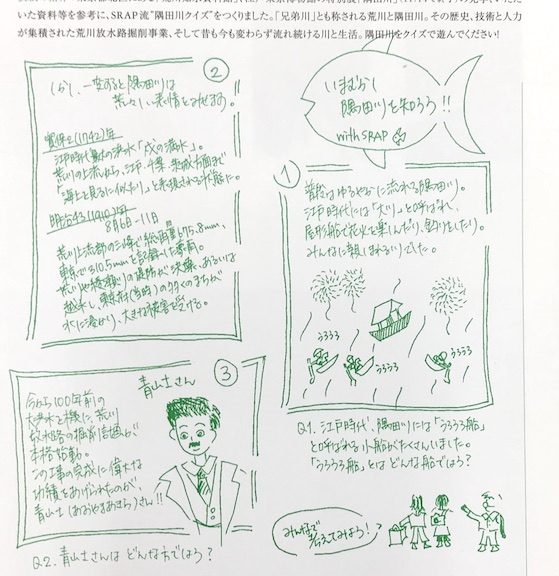 いた資料等を参考に、SRAP流"隅田川クイズ"をつくりました。「兄弟川」とも称される荒川と隅田川。その歴史、技術と人力
が集積された荒川放水路掘削事業、そして昔も今も変わらず流れ続ける川と生活。隅田川をクイズで遊んでください!
いまむかし
隅田川を知ろう!!
with SRAP
①
普段はゆるやかに流れる隅田川。
江戸時代には「大川」と呼ばれ、
屋形船で花火を楽しんだり、釣りをしたり。
みんなに親しまれる川でした。
うろうろ
うろうろ
うろうろ
Q1. 江戸時代、隅田川には「うろうろ船」
と呼ばれる小船がたくさんいました。
「うろうろ船」とはどんな船でしょう?
みんなで
考えてみよう!
②
しかし、一変すると隅田川は
荒々しい表情をみせます。
寛保2(1742)年
江戸時代最大の洪水「戌の満水」。
荒川の上流から、江戸・千葉・茨城方面まで
「海上を見るに似たり」と表現される状態に。
明治43(1910)年
8月6日-11日
荒川上流部の三峰で総雨量
東京で310.5mmを記録した豪雨。
の堤防が決壊、あるいは
越水し、東京府(当時)の多くのまちが
水に浸かり、大きな被害を受ける。
③
青山士さん
今から100年前の
大洪水を機に、荒川
放水路の掘削計画が
本格始動。
この工事の完成に偉大な
功績をあげられたのが、
青山士(あおやまあきら)さん!!
Q2. 青山士さんはどんな方でしょう?